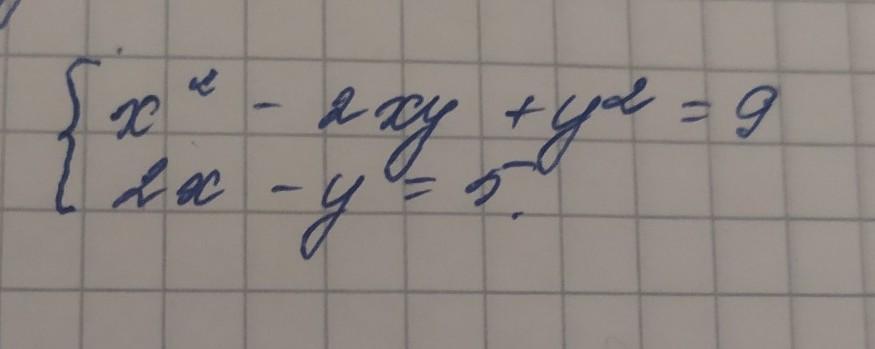 x² - 2xy + y² = 9
2x - y = 5.